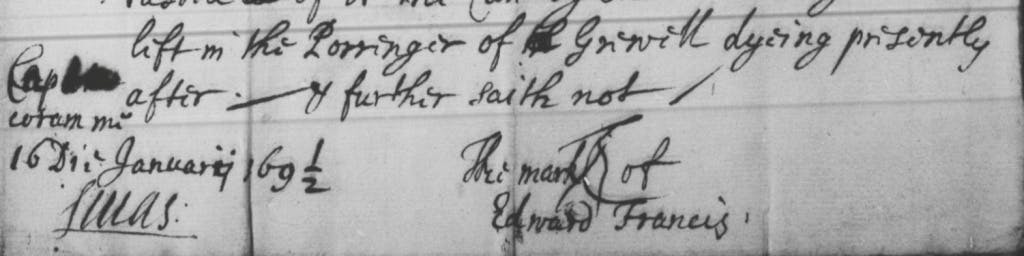 of
lift in the Porringer of Grewell dyeing presently
after. — & further saith not /
Cap
coram me
16 Die Januarij 169 1/2
The mark of
Edward Francis.